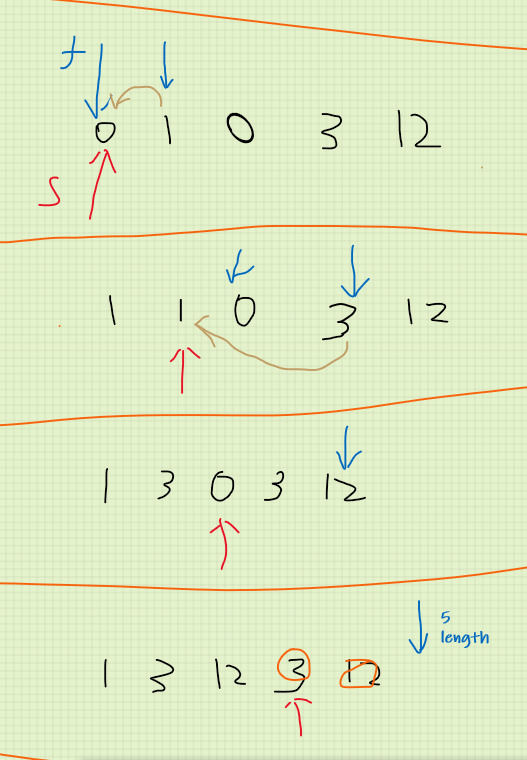 f
0 1 0 3 12
S
1 1 0 3 12
1 3 0 3 12
5
length
1 3 12 3 12